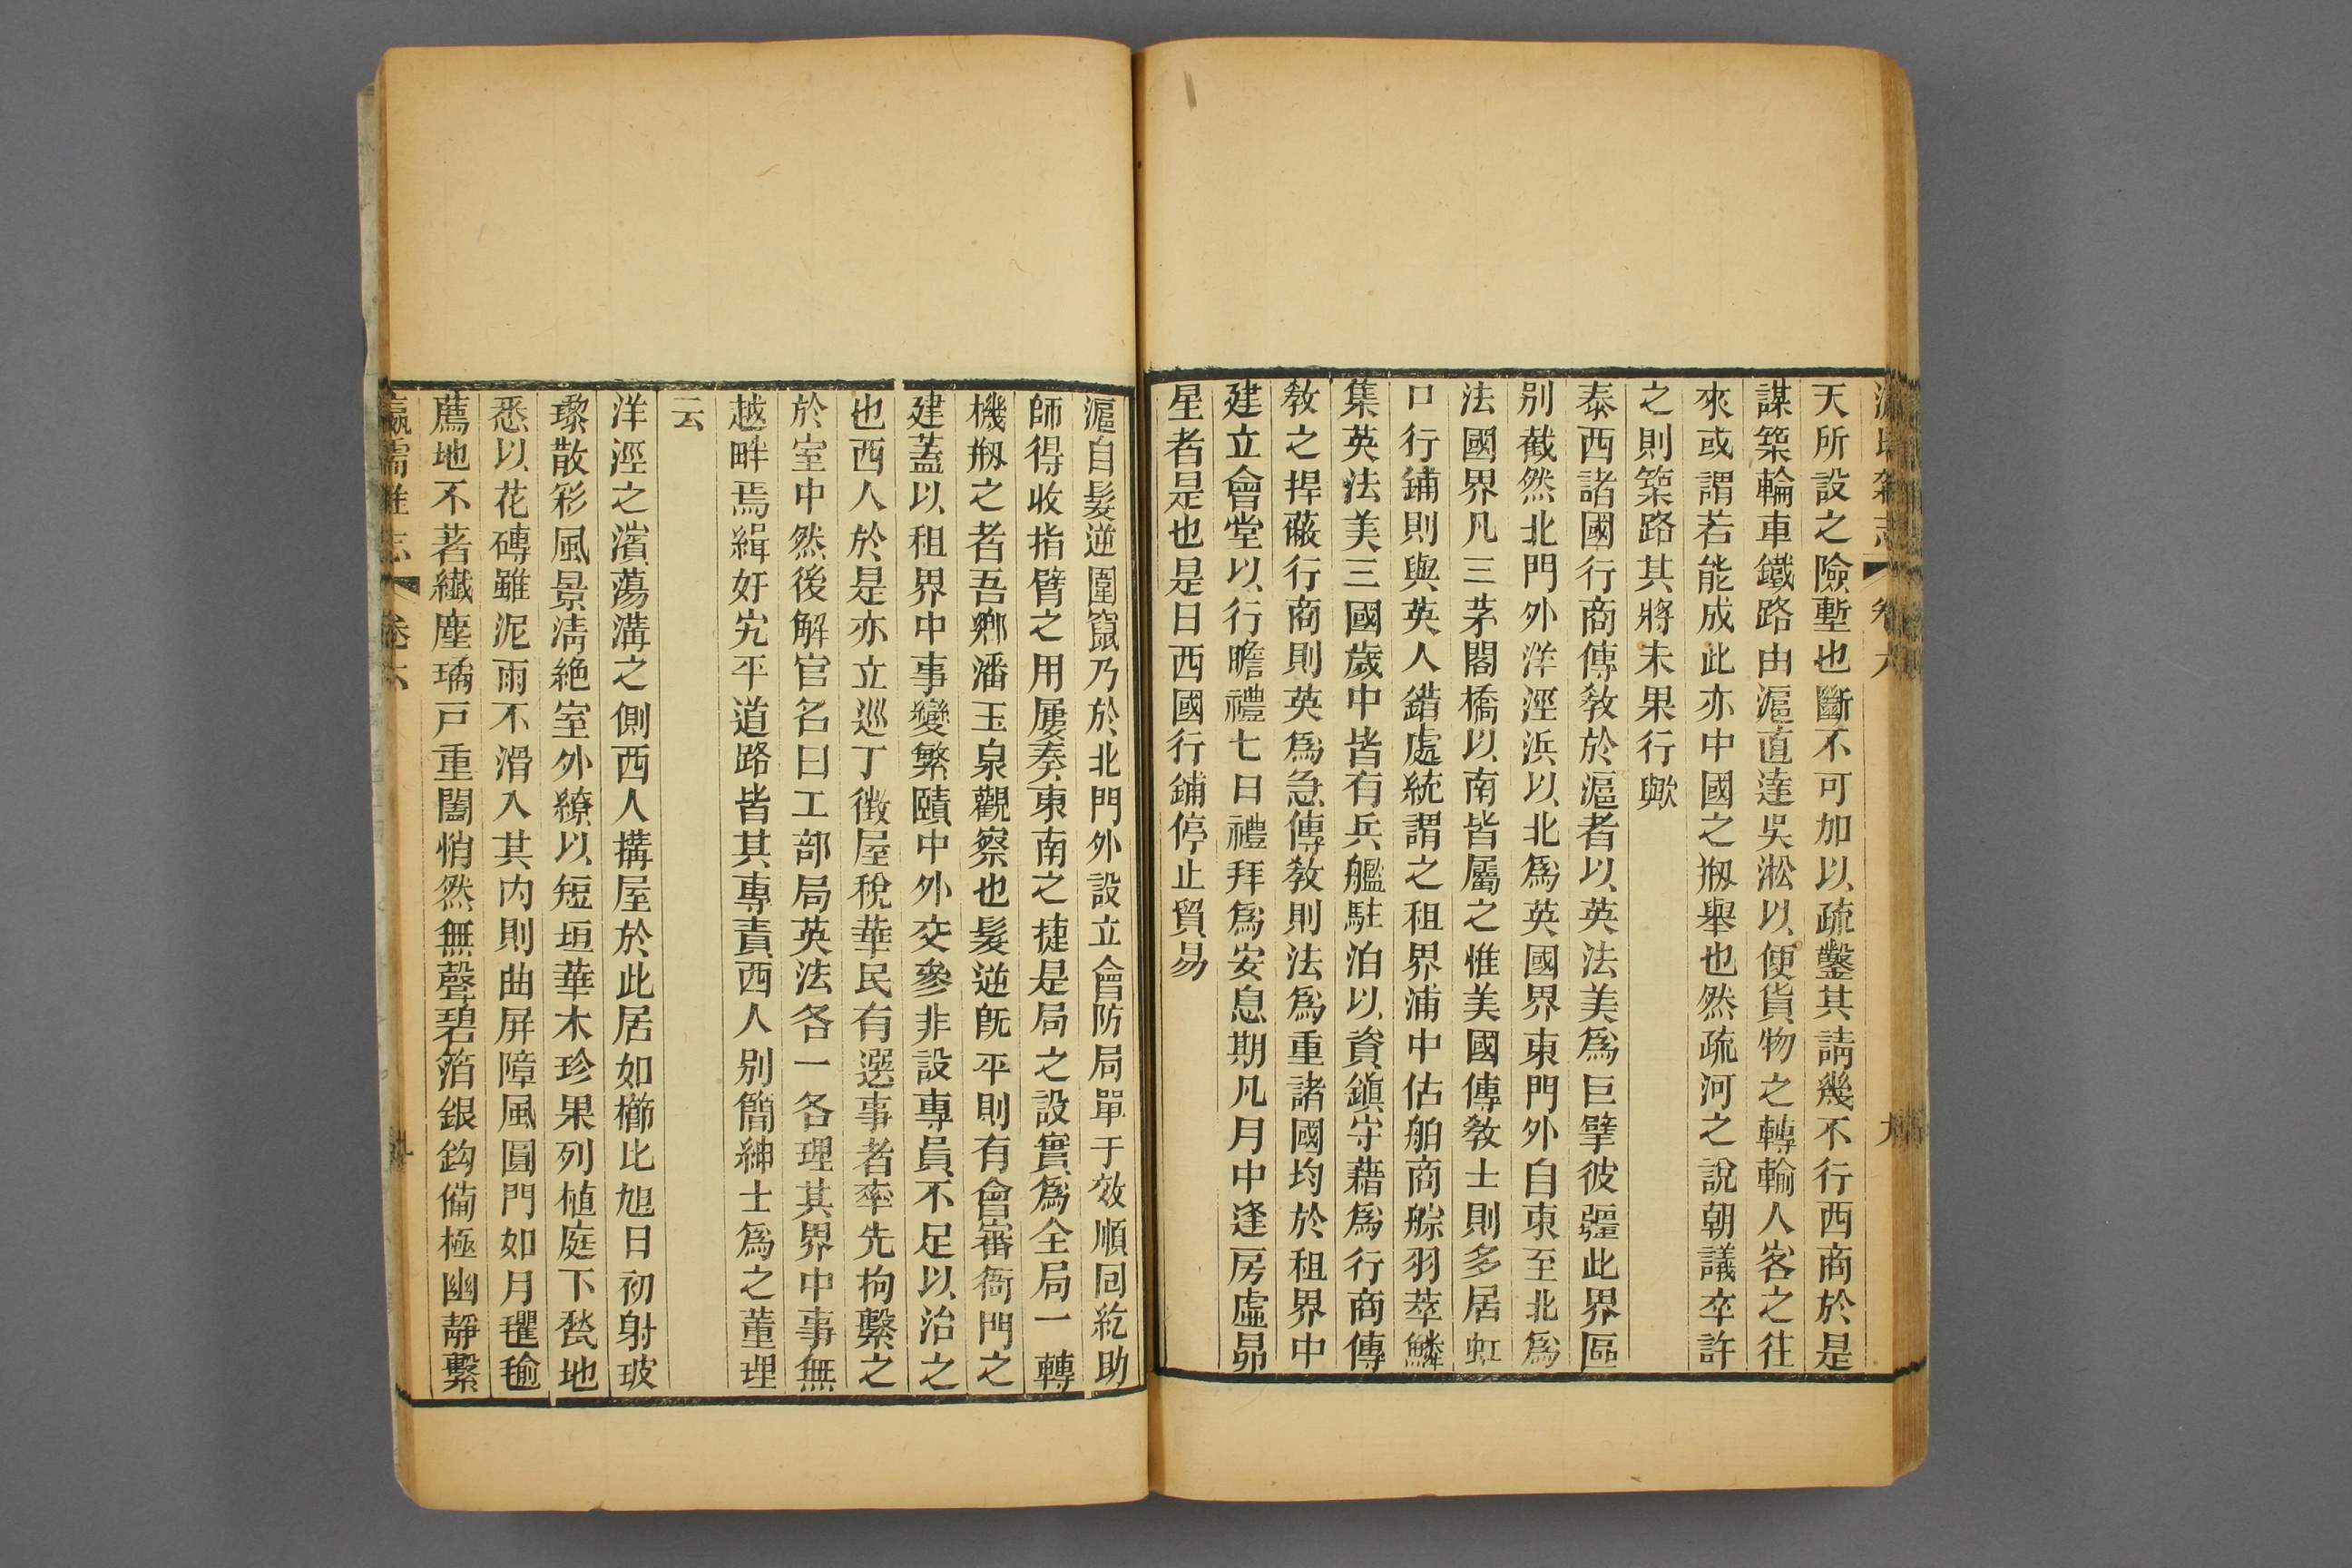 卷六
天所設之險塹也斷不可加以疏鑿其請幾不行西商於是
謀築輪車鐵路由滬直達吳淞以便貨物之轉輸人客之往
來或謂若能成此亦中國之剏舉也然疏河之說朝議卒許
之則築路其將未果行歟
泰西諸國行商傳敎於滬者以英法美爲巨擘彼疆此界區
別截然北門外洋涇浜以北爲英國界東門外自東至北爲
法國界凡三茅閣橋以南皆屬之惟美國傳敎士則多居虹
口行鋪則與英人錯處統謂之租界浦中估舶商艅羽萃鱗
集英法美三國歲中皆有兵艦駐泊以資鎭守藉爲行商傳
敎之捍蔽行商則英爲急傳敎則法爲重諸國均於租界中
建立會堂以行瞻禮七日禮拜爲安息期凡月中逢房虛昴
星者是也是日西國行鋪停止貿易
滬自髮逆圍竄乃於北門外設立會防局單于效順回紇助
師得收指臂之用屢奏東南之捷是局之設實爲全局一轉
機剏之者吾鄕潘玉泉觀察也髮逆旣平則有會審衙門之
建蓋以租界中事變繁賾中外交參非設專員不足以治之
也西人於是亦立巡丁徵屋稅華民有選事者率先拘繫之
於室中然後解官名曰工部局英法各一各理其界中事無
越畔焉緝奸宄平道路皆其專責西人別簡紳士爲之董理
云
洋涇之濱蕩溝之側西人搆屋於此居如櫛比旭日初射玻
瓈散彩風景淸絶室外繚以短垣華木珍果列植庭下甃地
悉以花磚雖泥雨不滑入其內則曲屏障風圓門如月氍毹
薦地不著纖塵璚戸重闥悄然無聲碧箔銀鈎備極幽靜繫
瀛壖雜志 卷六